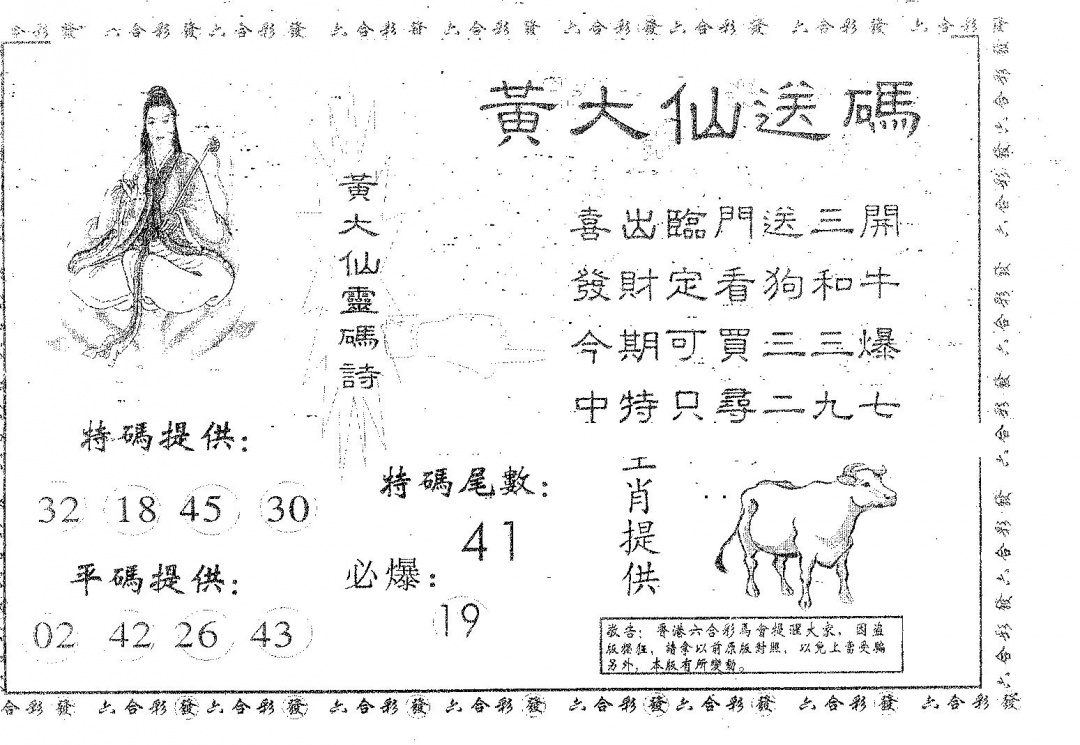 合彩發 六合彩發六合彩發 六合彩發 六合彩發 六合彩發六合彩發 六合彩發 六合彩發
黃大仙送碼
黃大仙靈碼詩
喜出臨門送三開
發財定看狗和牛
今期可買三三爆
中特只尋二九七
特碼提供:
32 18 45 30
平碼提供:
02 42 26 43
特碼尾數:
41
必爆:
19
肖提供
敬告:香港六合彩馬會提醒大家,因盜
版猖狂,請拿以前原版對照,以免上當受騙
另外,本版有所變動。
六合彩發六合彩發六合彩發 六合彩發 六合彩發六合彩發
合彩發 六合彩發六合彩發 六合彩發 六合彩發 六合彩發六合彩發 六合彩發 六合彩發